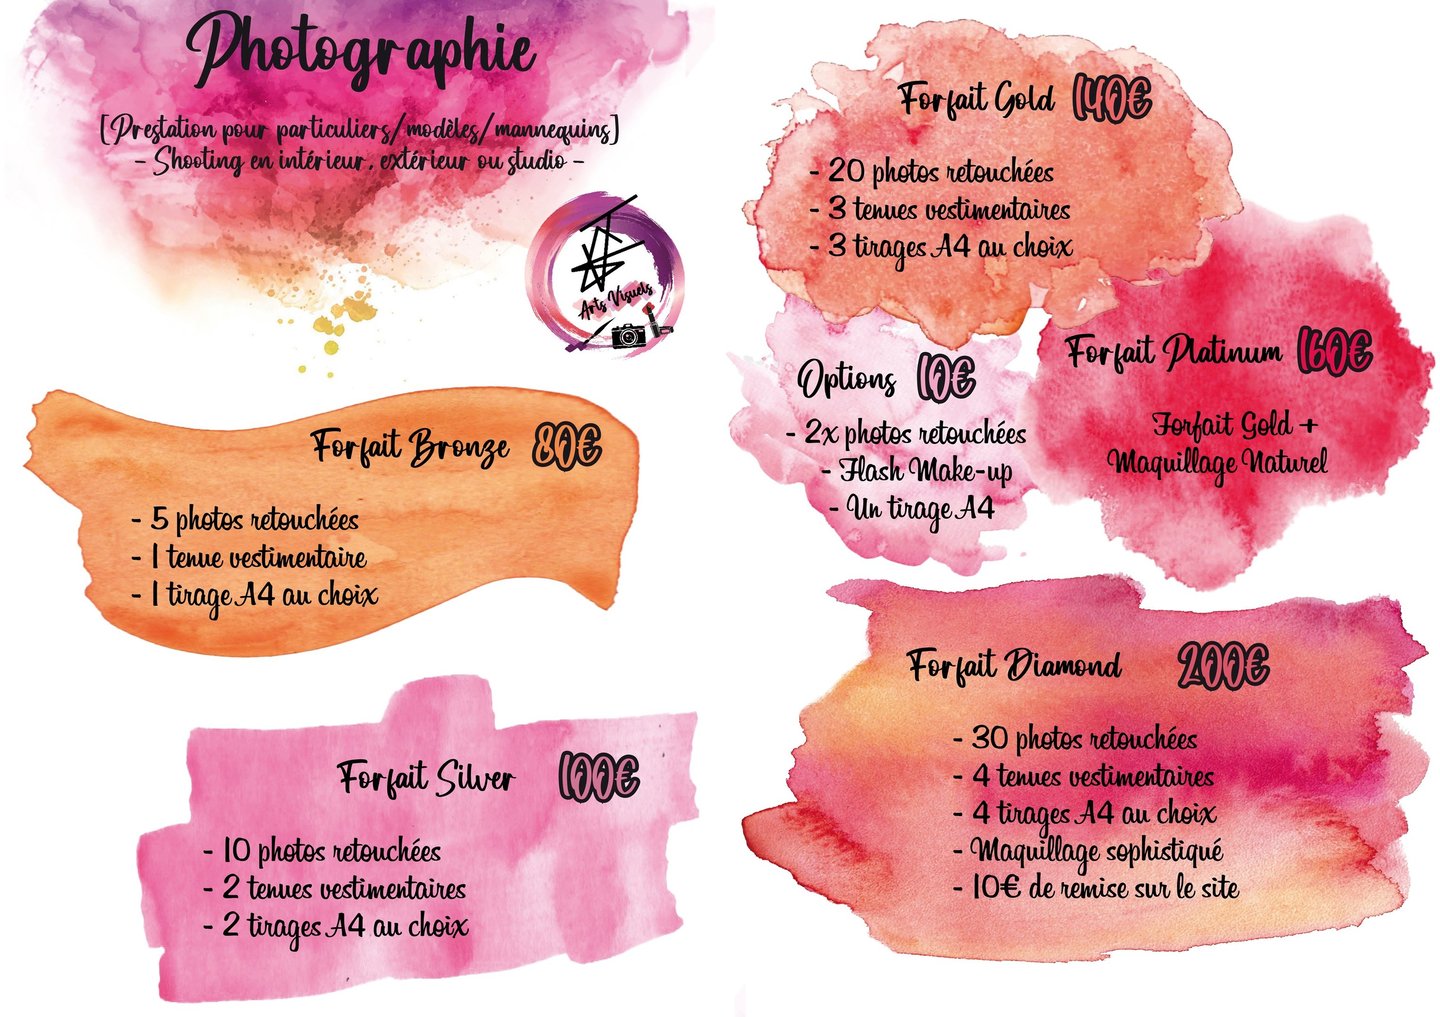 Photographie
[Prestation pour particuliers/modèles/mannequins]
- Shooting en intérieur, extérieur ou studio -
Arts Visuels
Forfait Bronze 80€
- 5 photos retouchées
- 1 tenue vestimentaire
- 1 tirage A4 au choix
Forfait Silver 100€
- 10 photos retouchées
- 2 tenues vestimentaires
- 2 tirages A4 au choix
Forfait Gold 140€
- 20 photos retouchées
- 3 tenues vestimentaires
- 3 tirages A4 au choix
Options 10€
- 2x photos retouchées
- Flash Make-up
- Un tirage A4
Forfait Platinum 160€
Forfait Gold +
Maquillage Naturel
Forfait Diamond 200€
- 30 photos retouchées
- 4 tenues vestimentaires
- 4 tirages A4 au choix
- Maquillage sophistiqué
- 10€ de remise sur le site